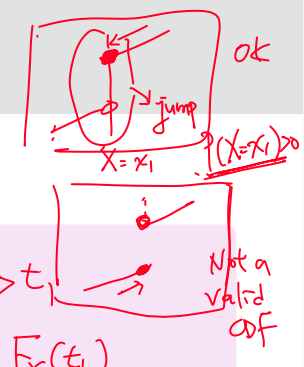 OK
jump
X = x₁
P(X=x₁)>0
> t₁
Not a
valid
CDF
Fₓ(t₁)